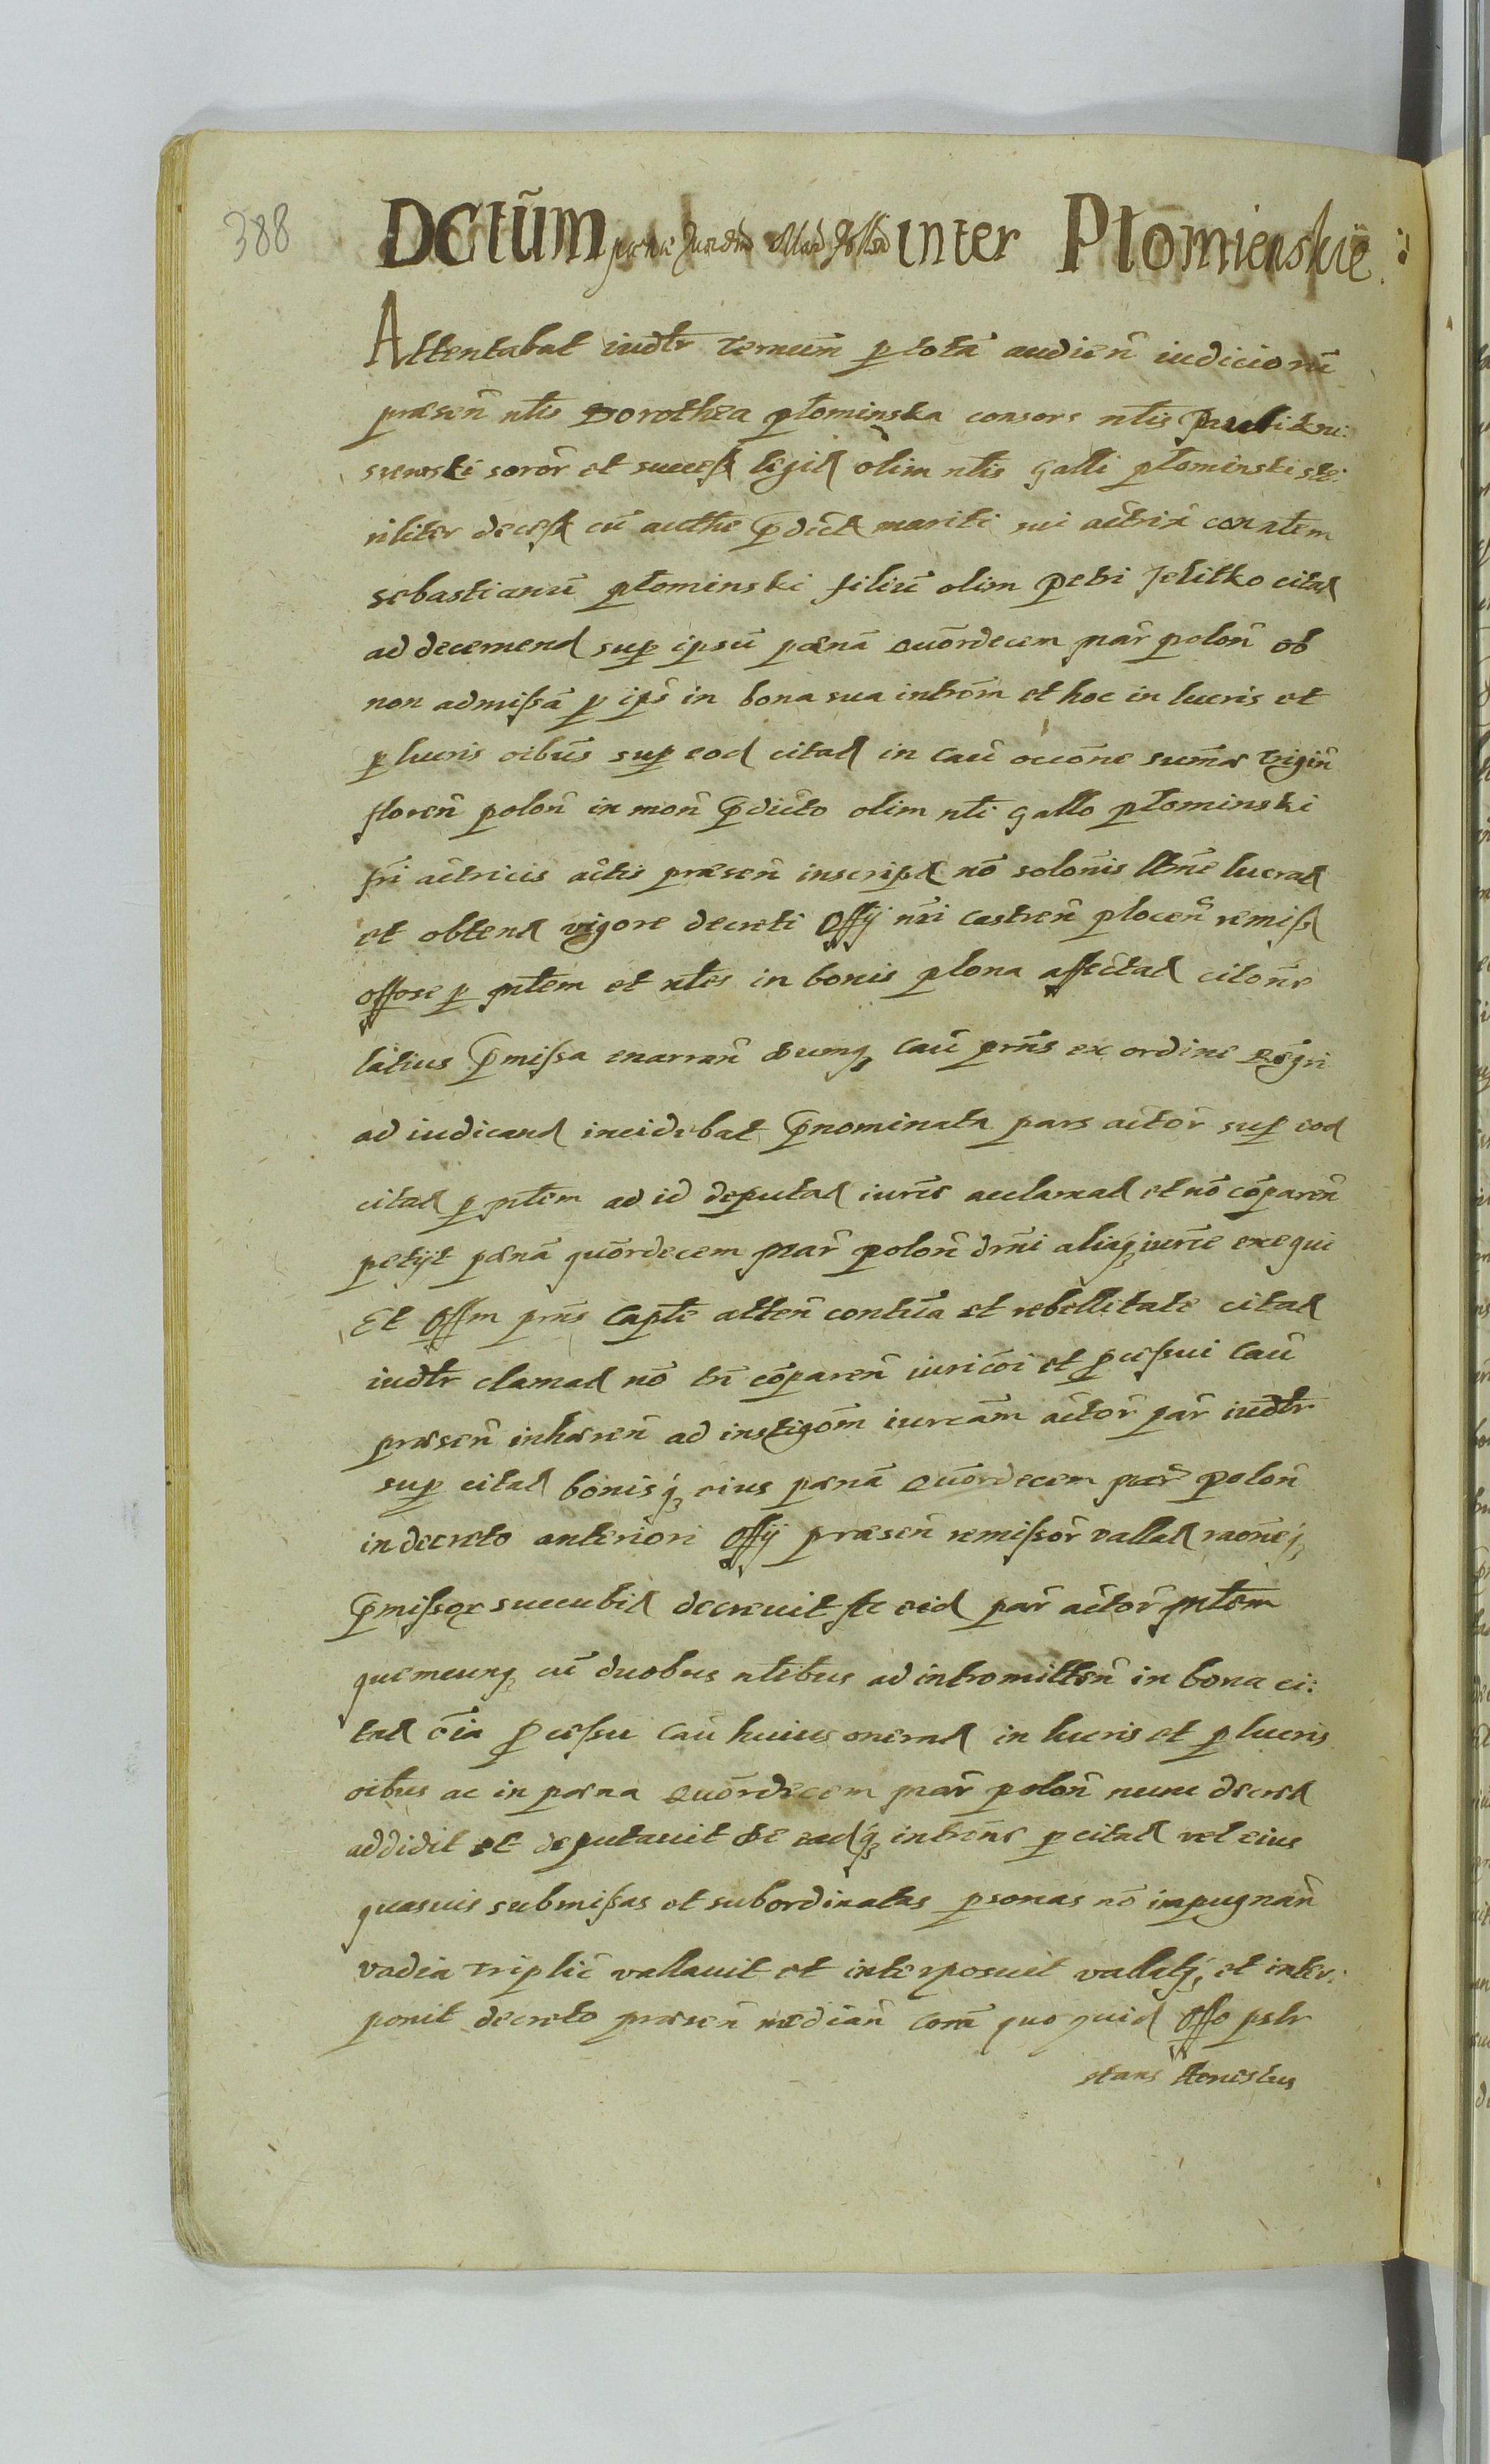 388
Dctũm pœnæ inter Płomienskie
Attentabat iudłr termin̄ p totā audien̄ iudiciorū
præsen̄ nłis Dorothea płominska consors nłis Pauli
soror̄ et succeß legit̄ olim nłis Galli płominski ste:
riliter deceß cū authe p̄dict̄ mariti sui actrix con nłem
sebastianū płominski filiū olim Petri Jelitko citat̄
ad decernend̄ sup ipsū pœnā quōrdecem mar̄ polon̄ ob
non admißā p ips̄ in bona sua introm̄ et hoc in lucris et
p lucris oibus sup eod̄ citat̄ in cau̅ occōne sum̄æ trigin̄
floren̄ polon̄ in mon̄ p̄dicto olim nłi Gallo płominski
fri actricis actis præsen̄ inscript̄ nō solōnis ltm̄e lucrat̄
et obtent̄ vigore decreti Offij nr̄i castren̄ plocen̄ remiß
offose p młem et nłes in bonis plona affectat̄ citōne
latius p̄mißa enarran̄ Cumq₃ cau̅ prn̄s ex ordine regri
ad iudicand̄ incidebat p̄nominata pars actor̄ sup eod̄
citat̄ p młem ad id deputat̄ iurēe acclamat̄ et nō cōparen̄
petijt pœnā quōrdecem mar̄ polon̄ drn̄i aliaq₃ iurēe exequi
Et Offm prn̄s Captle atten̄ contūa et rebellitate citat̄
iudłr clamat̄ nō tn̄ cōparen̄ iuri cōi et pceßui cau̅
præsen̄ inhæren̄ ad instigōm iurēam actor̄ par̄ iudłr
sup citat̄ bonisq₃ eius pœnā quōrdecem mar̄ polon̄
in decreto anteriori Offij præsen̄ remißor̄ vallat̄ raōneq₃
p̄mißoꝝ succubit̄ decreuit Ac eid̄ par̄ actor̄ młem
quemcunq₃ cū duobus nłebus ad intromitten̄ in bona ci:
tat̄ oīa pceßu cau̅ huius onerat̄ in lucris et p lucris
oibus ac in pœna quōrdecem mar̄ polon̄ nunc decret̄
addidit et deputauit De eadq₃ introm̄e p citat̄ vel eius
quasuis submißas et subordinatas psonas nō impugnan̄
vadia triplic̄ vallauit et interposuit vallatq₃ et inter:
ponit decreto præsen̄ median̄ corā quo quid̄ Offo pslr
stans